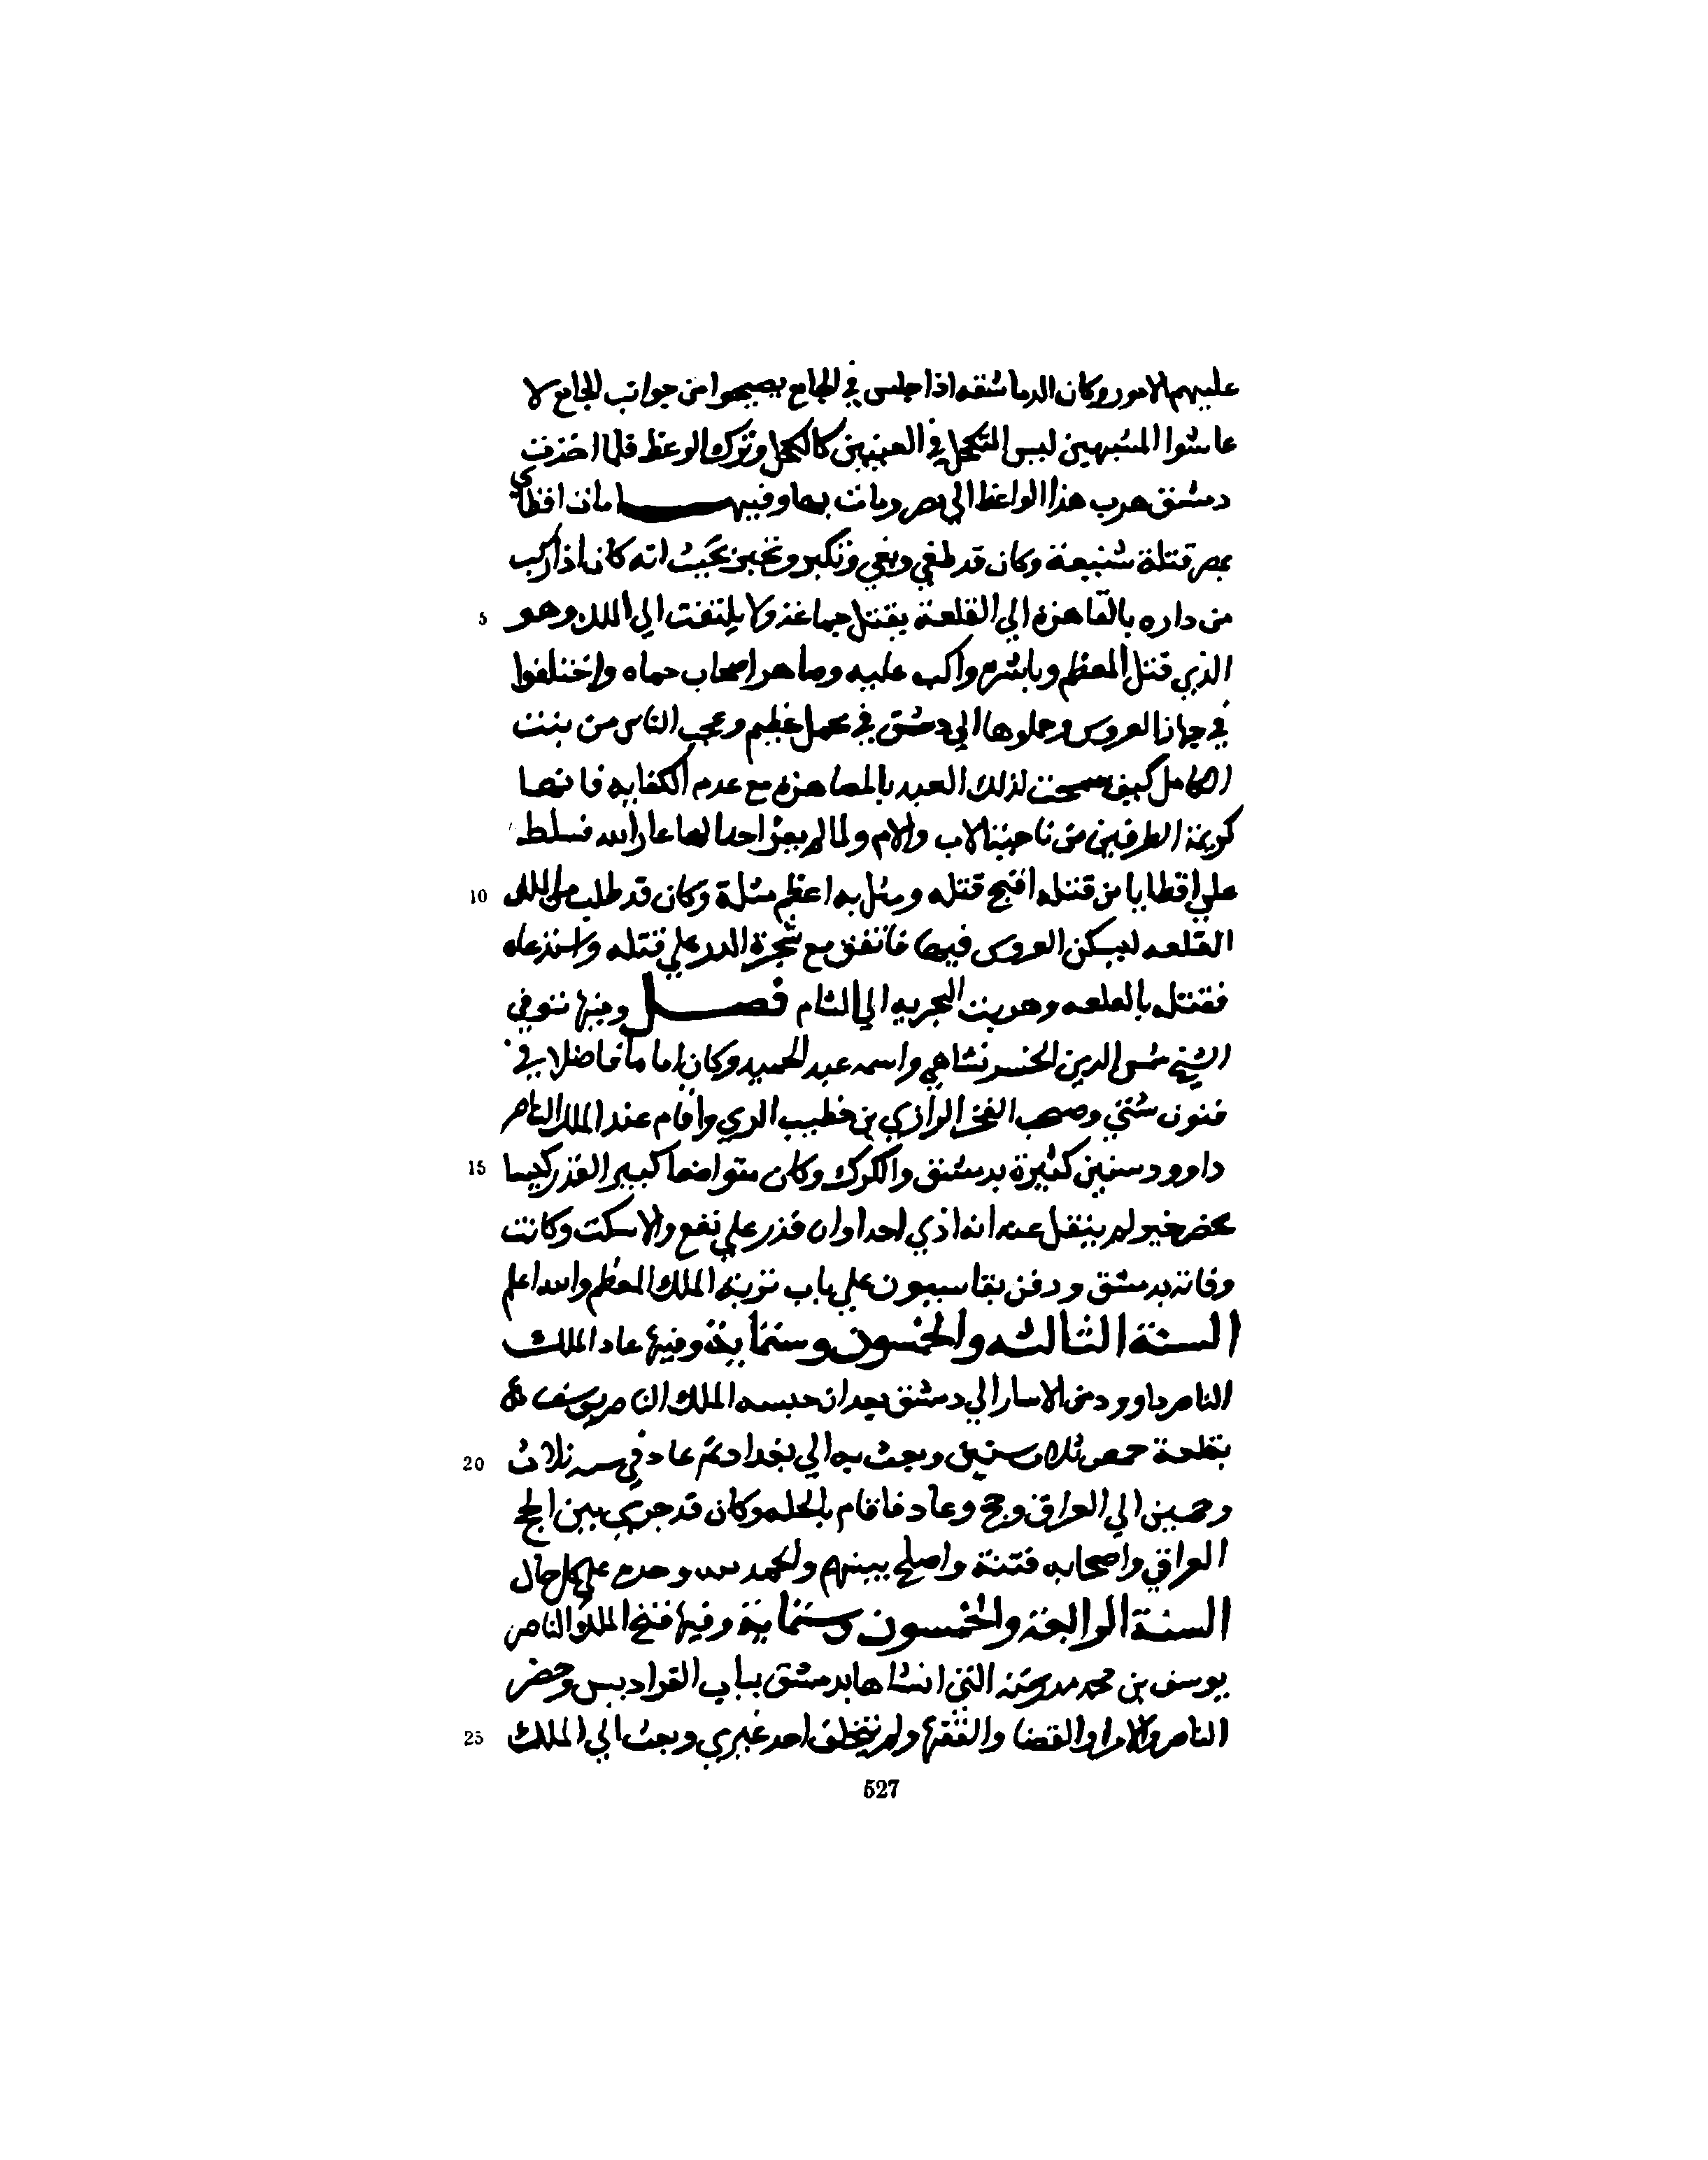 عليهم الامور وكان الدماشقه اذا جلس في الجامع يصيحوا من جوانب الجامع لا
عاشوا المشبهين ليس التكحل في العينين كالكحل وترك الوعظ فلما اخذت
دمشق هرب هذا الواعظ الي مصر ومات بها وفيها مات اقطاي
بمصر قتلة شنيعة وكان قد طغي وبغي وتكبر وتجبر بحيث انه كان اذا ركب
5 من داره بالقاهرة الي القلعة يقتل جماعة ولا يلتفت الي الملك وهو
الذي قتل المعظم وباشر واكب عليه وصاهر اصحاب حماه واختلفوا
في جهاز العروس وحملوها الي دمشق في محمل عظيم وعجب الناس من بنت
الكامل كيف سمحت لذلك العبد بالمصاهرة مع عدم الكفايه فانها
كريمة الطرفين من ناحيتا الاب والام ولما لم يعر احدا لها عار الله فسلط
10 علي اقطايا من قتله اقبح قتله ومثل به اعظم مثلة وكان قد طلب من الملك
القلعه ليسكن العروس فيها فاتفق مع شجرة الدر علي قتله واستدعاه
فقتل بالقلعه وهربت البحريه الي الشام فصل وفيها توفي
الشيخ شمس الدين الخسروشاهي واسمه عبد الحميد وكان اماما فاضلا في
فنون شتي وصحب الفخر الرازي بن خطيب الري واقام عند الملك الناصر
15 داوود سنين كثيرة بدمشق والكرك وكان متواضعا كبير القدر كيسا
محضر خير لم ينقل عنه انه اذي احدا وان قدر علي نفع والا سكت وكانت
وفاته بدمشق ودفن بقاسيون علي باب تربة الملك المعظم والله اعلم
السنة الثالثه والخمسون وستماية وفيها عاد الملك
الناصر داوود من الانبار الي دمشق بعد ان حبسه الملك الناصر يوسف
20 بقلعة حمص ثلاث سنين وبعث به الي بغداد ثم عاد في سنه ثلاث
وخمسين الي العراق وحج وعاد فاقام بالحله وكان قد جري بين الحج
العراقي واصحابه فتنة واصلح بينهم والحمد لله وحده علي كل حال
السنة الرابعة والخمسون وستماية وفيها فتح الملك الناصر
يوسف بن محمد مدرسته التي انشاها بدمشق بباب الفراديس وحضر
25 الناصر والامرا والقضا والفقها ولم يتخلف احد غيري وبعث الي الملك
527